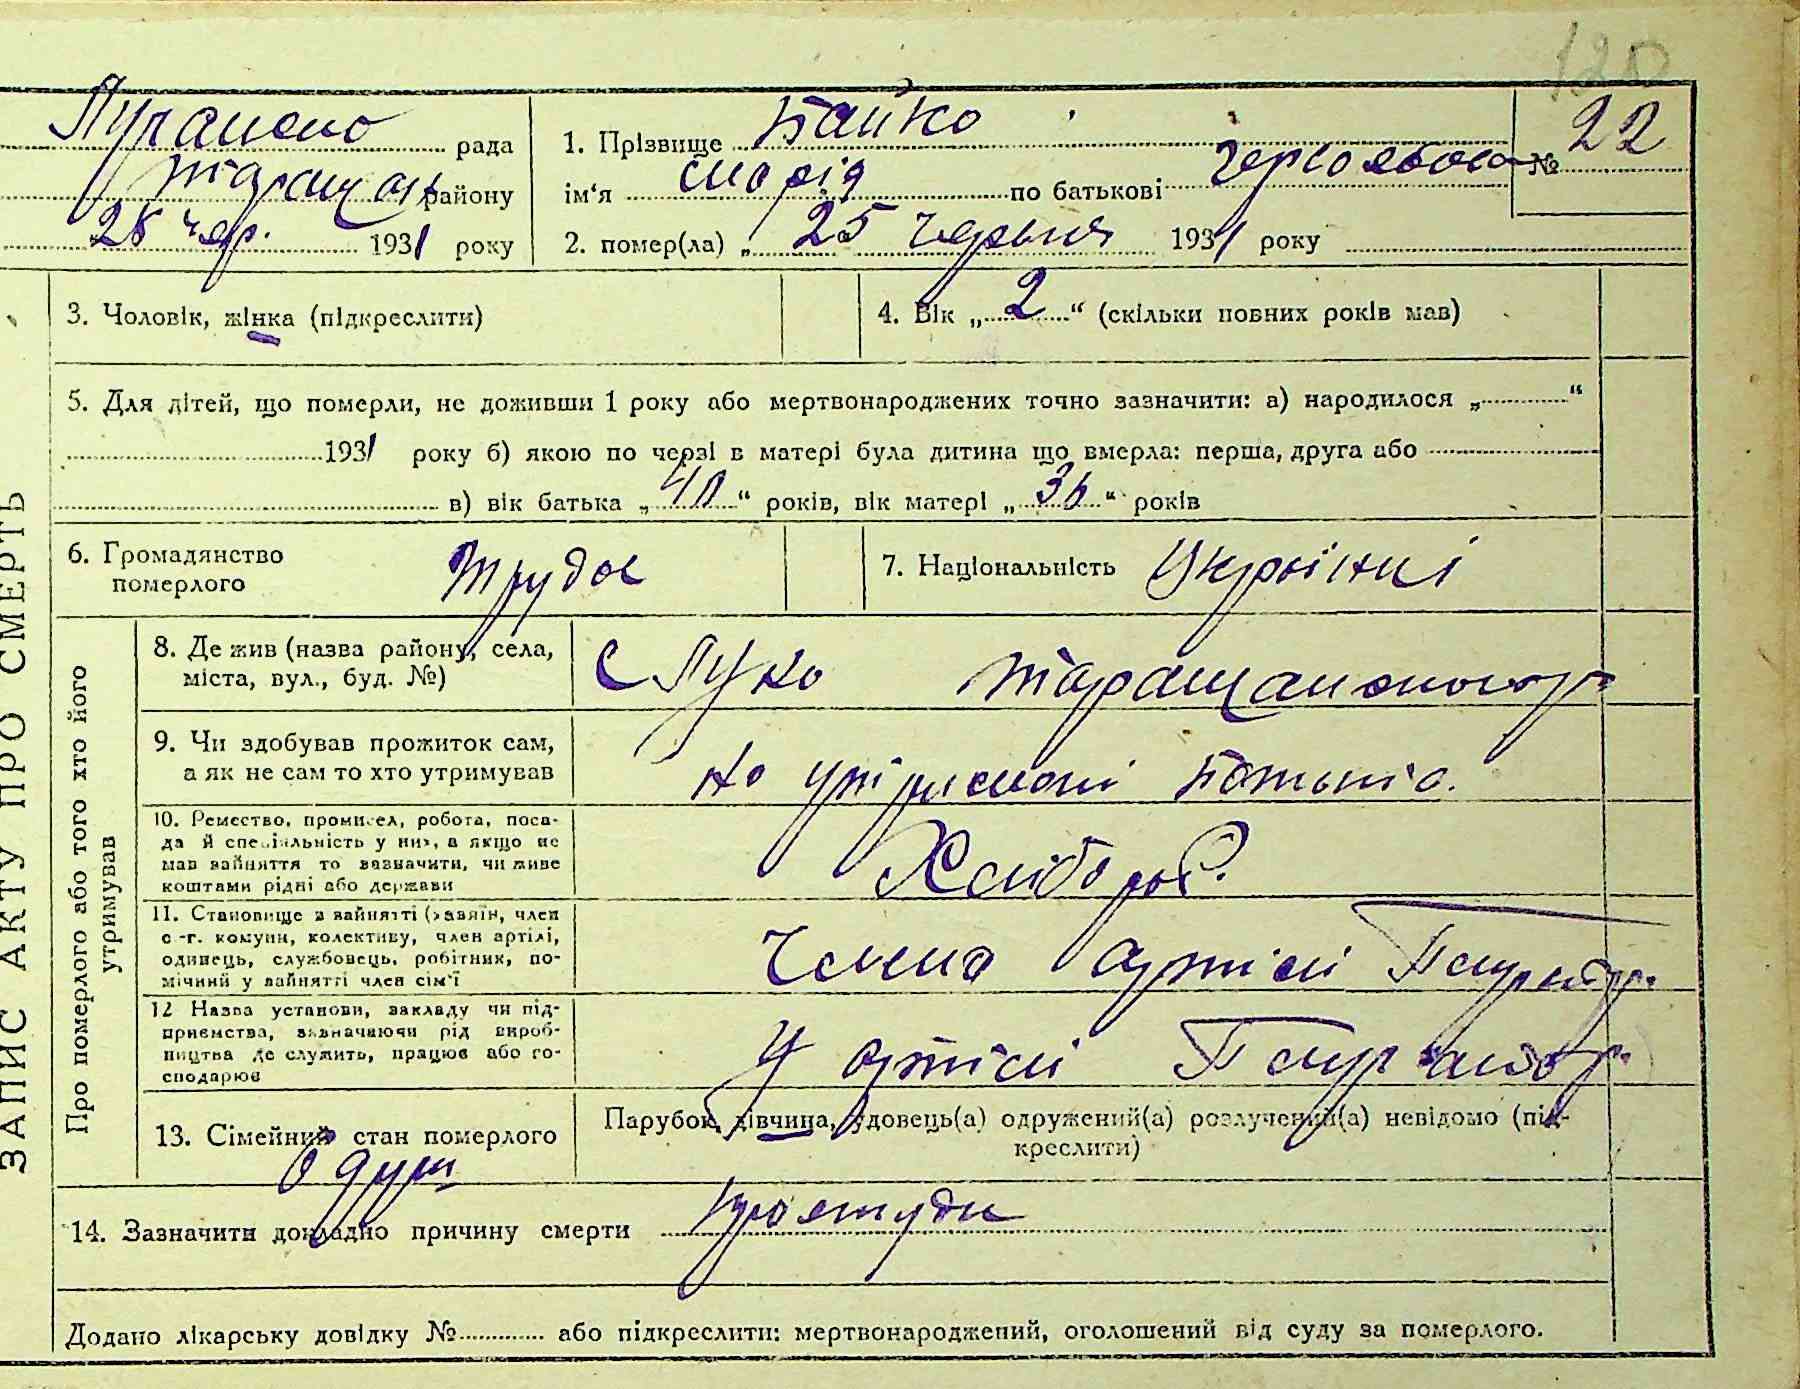 120
рада
1. Прізвище Байко
№ 22
району
ім‘я Марія по батькові
28 чер. 1931 року
2. помер(ла) „ 25 червня 1931 року
ЗАПИС АКТУ ПРО СМЕРТЬ
3. Чоловік, жінка (підкреслити)
4. Вік „ 2 “ (скільки повних років мав)
5. Для дітей, що померли, не доживши 1 року або мертвонароджених точно зазначити: а) народилося „ “
1931 року б) якою по черзі в матері була дитина що вмерла: перша, друга або
в) вік батька „ 40 “ років, вік матері „ 36 “ років
6. Громадянство
померлого
Трудов
7. Національність Україн
Про померлого або того хто його
утримував
8. Де жив (назва району, села,
міста, вул., буд. №)
с Лука Таращанського р
9. Чи здобував прожиток сам,
а як не сам то хто утримував
на утриманні батька.
10. Ремество, промисел, робота, поса-
да й спеціяльність у них, а якщо не
мав зайняття то зазначити, чи живе
коштами рідні або держави
Хлібороб.
11. Становище в зайнятті (хазяїн, член
с-г. комуни, колективу, член артілі,
одинець, службовець, робітник, по-
мічний у зайнятті член сім‘ї
Члена артілі
12 Назва установи, закладу чи під-
приємства, зазначаючи рід вироб-
ництва де служить, працює або го-
сподарює
У артілі
13. Сімейний стан померлого
Парубок, дівчина, удовець(а) одружений(а) розлучений(а) невідомо (під-
креслити)
14. Зазначити докладно причину смерти простуди
Додано лікарську довідку № або підкреслити: мертвонароджений, оголошений від суду за померлого.